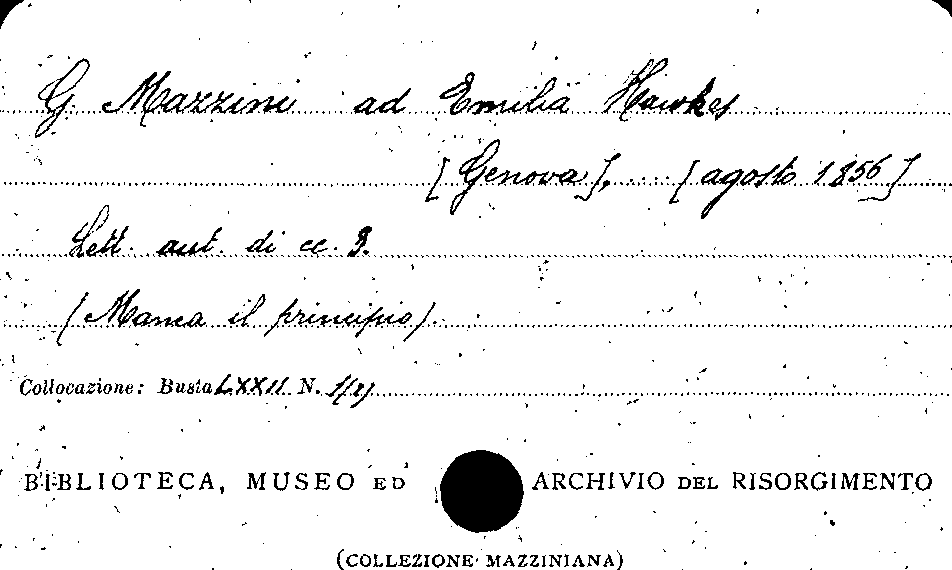 G. Mazzini ad Emilia Hawkes
[Genova], .... [agosto 1856]
Lett. aut. di cc. 3.
(Manca il principio).
Collocazione: Busta LXXII N.
BIBLIOTECA, MUSEO ED ARCHIVIO DEL RISORGIMENTO
(COLLEZIONE MAZZINIANA)